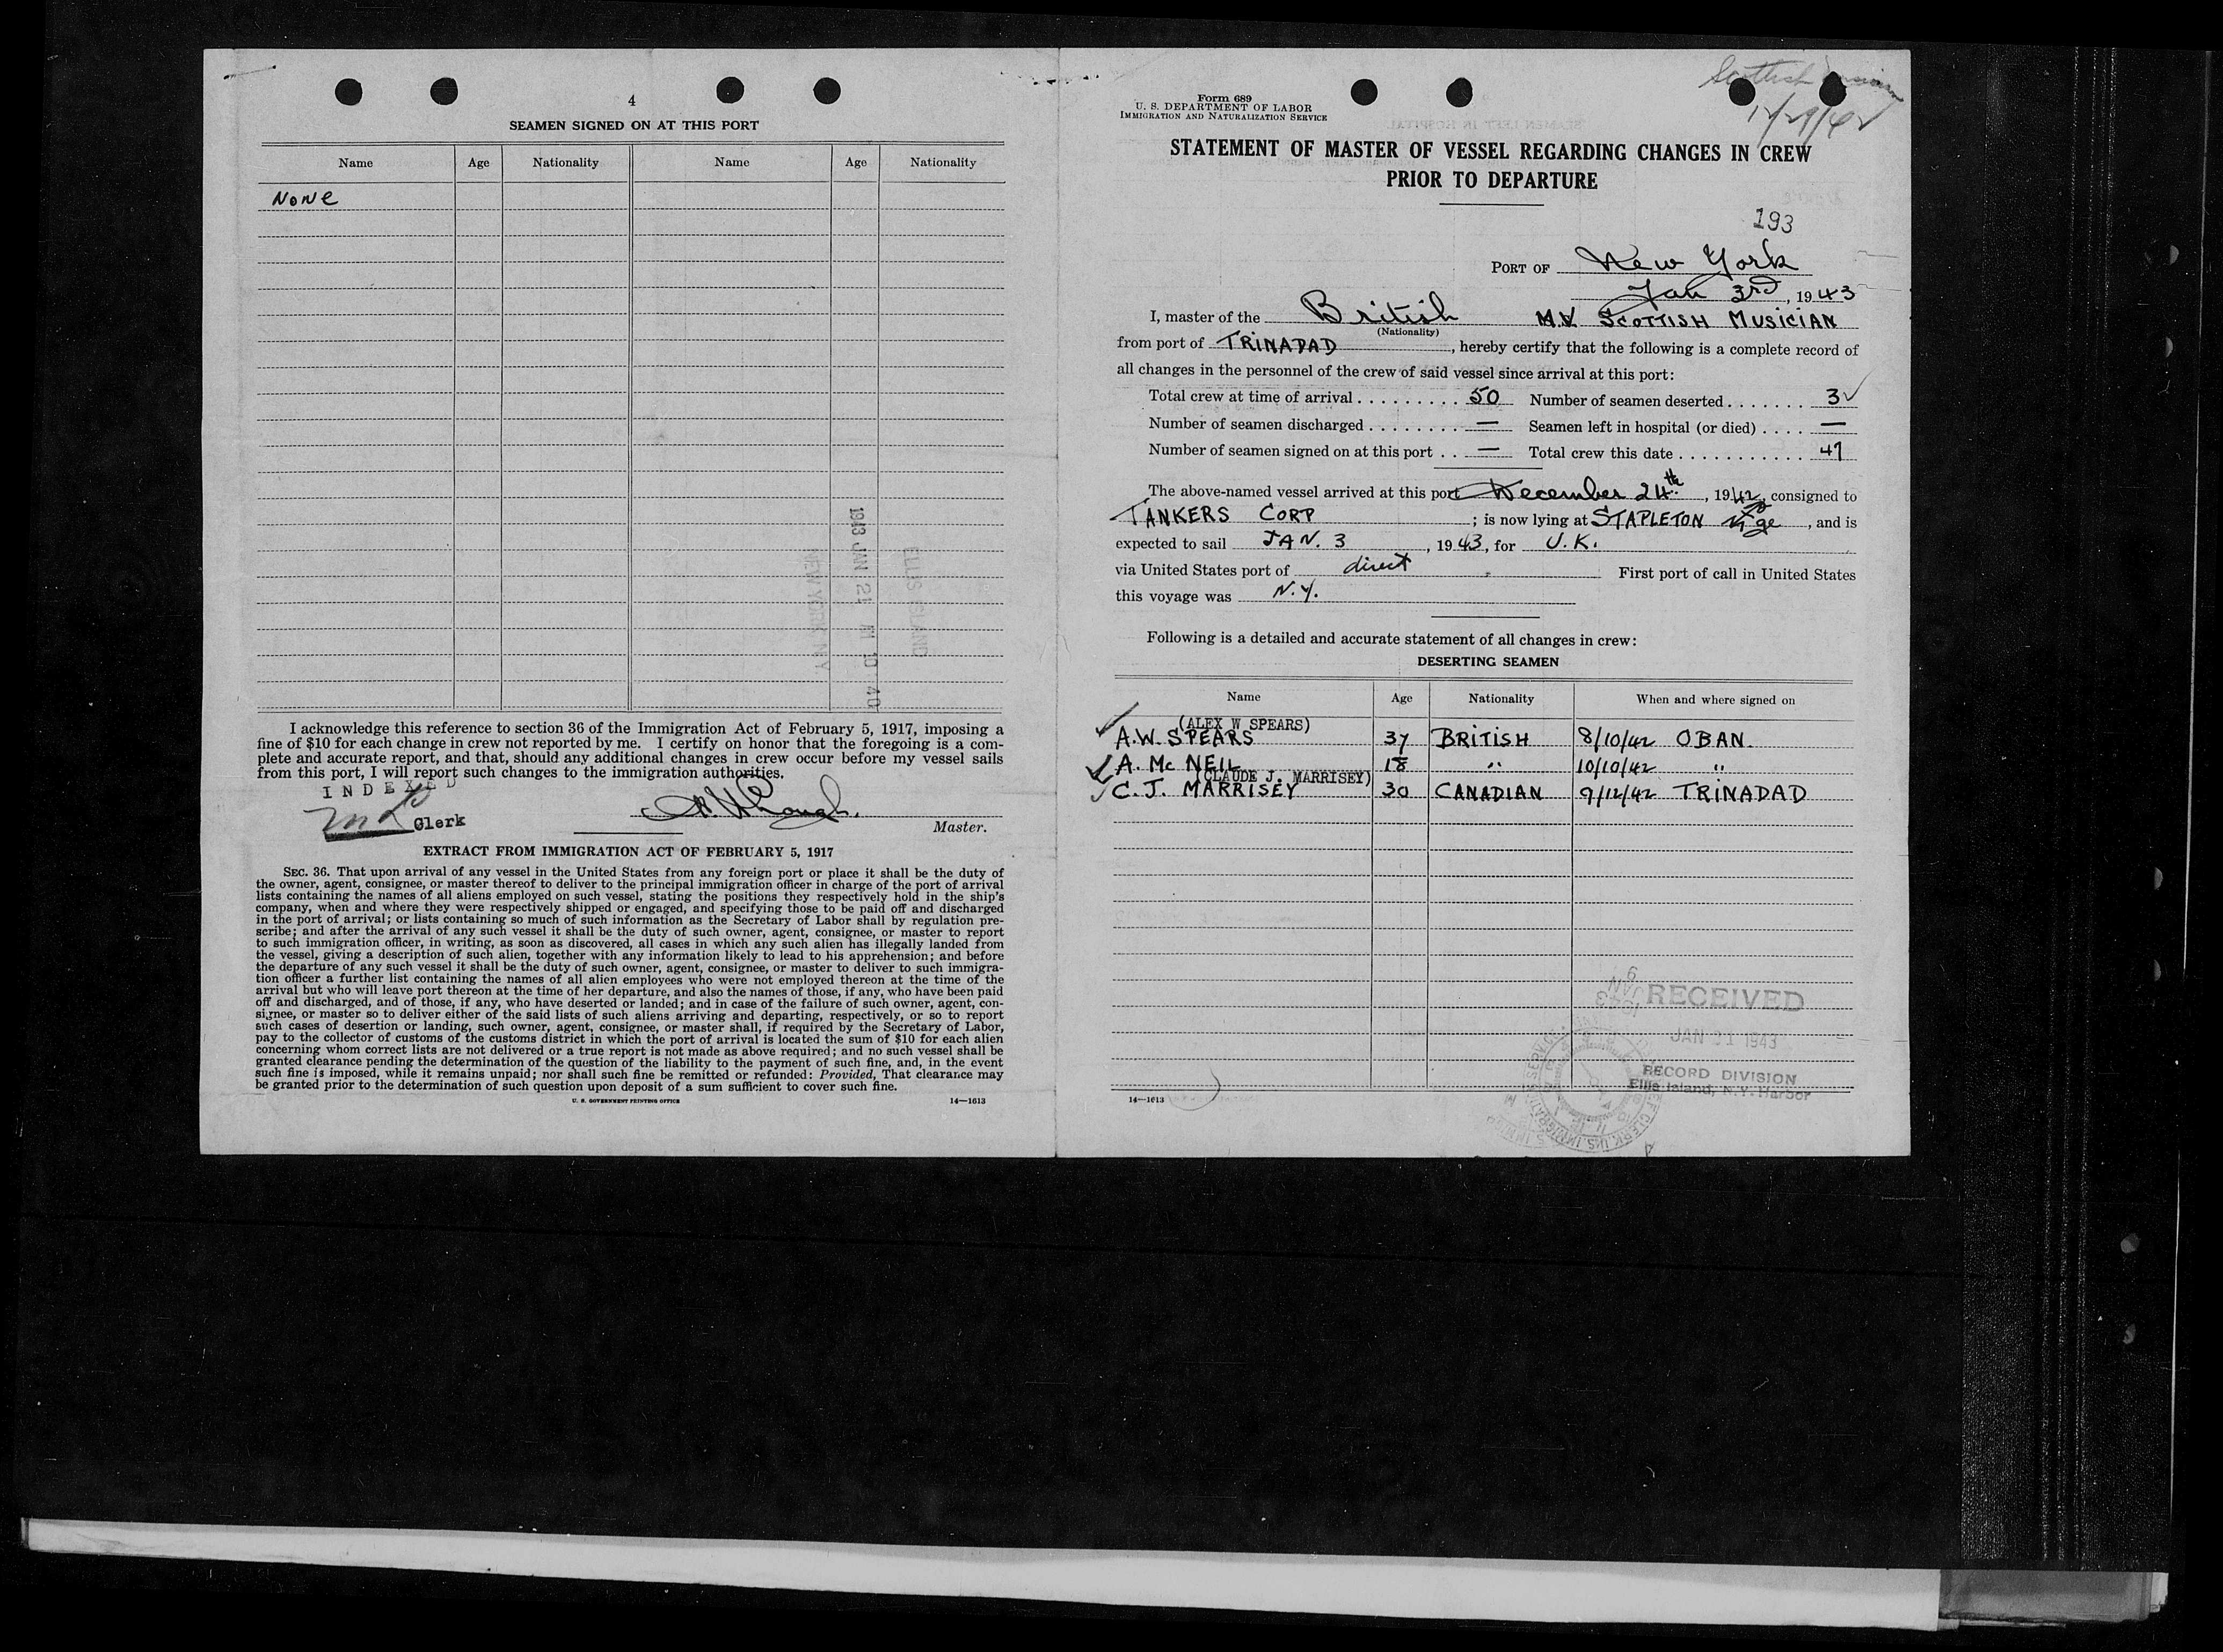 4
SEAMEN SIGNED ON AT THIS PORT
Name Age Nationality Name Age Nationality
None
1943 JAN 21
10 40
ELLIS ISLAND
NEW YORK N Y
I acknowledge this reference to section 36 of the Immigration Act of February 5, 1917, imposing a
fine of $10 for each change in crew not reported by me. I certify on honor that the foregoing is a com-
plete and accurate report, and that, should any additional changes in crew occur before my vessel sails
from this port, I will report such changes to the immigration authorities.
INDEXED
Clerk
Master.
EXTRACT FROM IMMIGRATION ACT OF FEBRUARY 5, 1917
SEC. 36. That upon arrival of any vessel in the United States from any foreign port or place it shall be the duty of
the owner, agent, consignee, or master thereof to deliver to the principal immigration officer in charge of the port of arrival
lists containing the names of all aliens employed on such vessel, stating the positions they respectively hold in the ship's
company, when and where they were respectively shipped or engaged, and specifying those to be paid off and discharged
in the port of arrival; or lists containing so much of such information as the Secretary of Labor shall by regulation pre-
scribe; and after the arrival of any such vessel it shall be the duty of such owner, agent, consignee, or master to report
to such immigration officer, in writing, as soon as discovered, all cases in which any such alien has illegally landed from
the vessel, giving a description of such alien, together with any information likely to lead to his apprehension; and before
the departure of any such vessel it shall be the duty of such owner, agent, consignee, or master to deliver to such immigra-
tion officer a further list containing the names of all alien employees who were not employed thereon at the time of the
arrival but who will leave port thereon at the time of her departure, and also the names of those, if any, who have been paid
off and discharged, and of those, if any, who have deserted or landed; and in case of the failure of such owner, agent, con-
signee, or master so to deliver either of the said lists of such aliens arriving and departing, respectively, or so to report
such cases of desertion or landing, such owner, agent, consignee, or master shall, if required by the Secretary of Labor,
pay to the collector of customs of the customs district in which the port of arrival is located the sum of $10 for each alien
concerning whom correct lists are not delivered or a true report is not made as above required; and no such vessel shall be
granted clearance pending the determination of the question of the liability to the payment of such fine, and, in the event
such fine is imposed, while it remains unpaid; nor shall such fine be remitted or refunded: Provided, That clearance may
be granted prior to the determination of such question upon deposit of a sum sufficient to cover such fine.
U. S. GOVERNMENT PRINTING OFFICE 14—1613
Scottish
12/29/42
Form 689
U. S. DEPARTMENT OF LABOR
IMMIGRATION AND NATURALIZATION SERVICE
STATEMENT OF MASTER OF VESSEL REGARDING CHANGES IN CREW
PRIOR TO DEPARTURE
193
PORT OF New York
Jan 3rd, 1943
I, master of the British M.V. SCOTTISH MUSICIAN
(Nationality)
from port of TRINADAD, hereby certify that the following is a complete record of
all changes in the personnel of the crew of said vessel since arrival at this port:
Total crew at time of arrival . . . . . . . . . 50 Number of seamen deserted . . . . . . . 3
Number of seamen discharged . . . . . . . . — Seamen left in hospital (or died) . . . . —
Number of seamen signed on at this port . . — Total crew this date . . . . . . . . . . . 47
The above-named vessel arrived at this port December 24th, 1942, consigned to
TANKERS CORP; is now lying at STAPLETON, and is
expected to sail JAN. 3, 1943, for U.K.
via United States port of direct First port of call in United States
this voyage was N.Y.
Following is a detailed and accurate statement of all changes in crew:
DESERTING SEAMEN
Name Age Nationality When and where signed on
(ALEX W SPEARS)
A.W. SPEARS 37 BRITISH 8/10/42 OBAN.
A. Mc NEIL 18 " 10/10/42 "
(CLAUDE J. MARRISEY)
C. J. MARRISEY 30 CANADIAN 9/12/42 TRINADAD
RECEIVED
JAN 11 1943
RECORD DIVISION
Ellis Island, N.Y. Harbor
14—1613